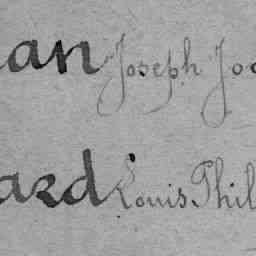 an Joseph Jo
ard Louis Phil